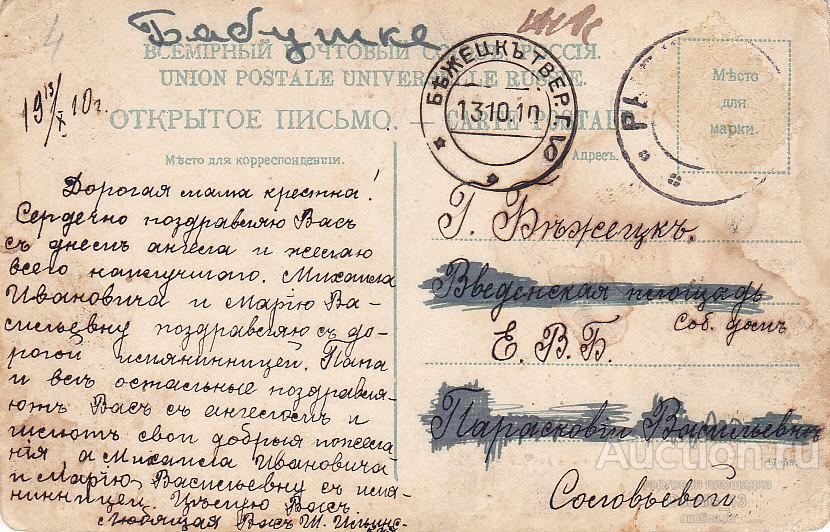 4
Бабушке
ВСЕМІРНЫЙ ПОЧТОВЫЙ СОЮЗЪ. РОССІЯ.
UNION POSTALE UNIVERSELLE RUSSIE.
19 13/X 10 г.
ОТКРЫТОЕ ПИСЬМО. — CARTE POSTALE
БѢЖЕЦКЪ ТВЕР. Г.
13.10.10
Мѣсто
для
марки.
Мѣсто для корреспонденціи.
Адресъ.
Дорогая мама крестна!
Сердечно поздравляю Васъ
съ днемъ ангела и желаю
всего наилучшаго. Михаила
Ивановича и Марію Ва-
сильевну поздравляю съ до-
рогой имянинницей. Папа
и всѣ остальные поздравля-
ютъ Васъ съ ангеломъ и
шлютъ свои добрыя пожела-
нія а Михаила Ивановича
и Марію Васильевну съ имя-
нинницей. Цѣлую Васъ
Любящая Васъ
Г. Бѣжецкъ.
Введенская площадь
Соб. домъ
Е. В. Б.
Парасковіи Васильевнѣ
Соловьевой
Auction.ru
торговая площадка
auction.ru